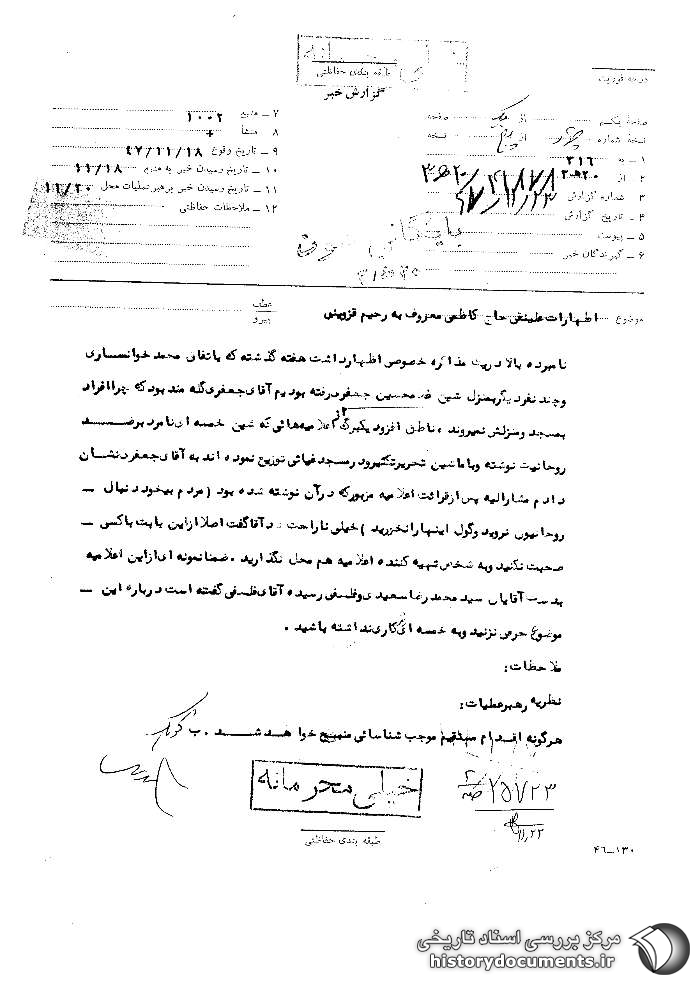 طبقه بندی حفاظتی
گزارش خبر
درجه فوریت
صفحه یکم از یک صفحه
نسخه شماره چهار از پنج نسخه
۱ - به ۳۱۶
۲ - از ۲۰ ه ۳
۳ - شماره گزارش ۴۱۸۷۸ / ۲۰ ه ۳
۴ - تاریخ گزارش ۴۷/۱۱/۲۳
۵ - پیوست
۶ - گیرندگان خبر
۷ - منبع ۱۰۰۲
۸ - منشأ +
۹ - تاریخ وقوع ۴۷/۱۱/۱۸
۱۰ - تاریخ رسیدن خبر به منبع ۱۱/۱۸
۱۱ - تاریخ رسیدن خبر برهبر عملیات محل ۱۱/۲۰
۱۲ - ملاحظات حفاظتی
بایگانی شود
موضوع اظهارات علینقی حاج کاظمی معروف به رحیم قزوینی
عطف
پیرو
نامبرده بالا در یک مذاکره خصوصی اظهار داشت هفته گذشته که باتفاق محمد خوانساری
و چند نفر دیگر بمنزل شیخ غلامحسین جعفری رفته بودیم آقای جعفری گله مند بود که چرا افراد
بمسجد و منزلش نمیروند ، ناطق افزود یکبرگ از اعلامیه هائی که شیخ خمسه ای نامرد برضد
روحانیت نوشته و با ماشین تحریر تکثیر و در مسجد غیاثی توزیع نموده اند به آقای جعفری نشان
دادم مشارالیه پس از قرائت اعلامیه مزبور که در آن نوشته شده بود ( مردم بیخود دنبال -
روحانیون نروید و گول اینها را نخورید ) خیلی ناراحت شد آقا گفت اصلا از این بابت با کسی -
صحبت نکنید و به شخص تهیه کننده اعلامیه هم محل نگذارید . ضمنا نمونه ای از این اعلامیه
بدست آقایان سید محمد رضا سعیدی و فلسفی رسیده آقای فلسفی گفته است درباره این -
موضوع حرفی نزنید و به خمسه ای کاری نداشته باشید .
ملاحظات :
نظریه رهبر عملیات :
هرگونه اقدام مستقیم موجب شناسائی منبع خواهد شد . ب
خیلی محرمانه
۲۵۷۲۳
۱۱/۲۳
طبقه بندی حفاظتی
۴۶-۱۳۰
مرکز بررسی اسناد تاریخی
historydocuments.ir